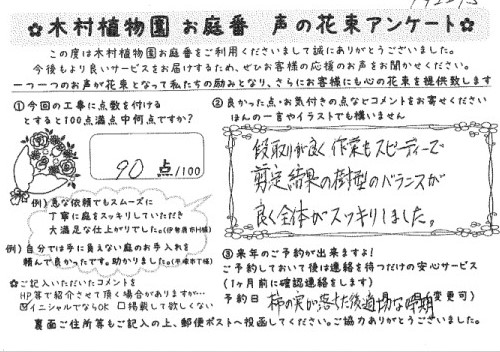 ✿木村植物園 お庭番 声の花束アンケート✿
この度は木村植物園お庭番をご利用くださいまして誠にありがとうございました。
今後もより良いサービスをお届けするため、ぜひお客様の応援のお声をお聞かせください。
一つ一つのお声が花束となって私たちの励みとなり、さらにお客様にも心の花束を提供致します
①今回の工事に点数を付ける
とすると100点満点中何点ですか?
90 点/100
例)急な依頼でもスムーズに
丁寧に庭をスッキリしていただき
大満足な仕上がりでした。(伊勢原市H様)
例)自分では手に負えない庭のお手入れを
頼んで良かったです。助かりました。(平塚市T様)
☆ご記入いただいたコメントを
HP等で紹介させて頂く場合がありますが…
☑イニシャルでならOK □掲載して欲しくない
②良かった点・お気付きの点などコメントをお寄せください
ほんの一言やイラストでも構いません
段取りが良く作業もスピーディーで
剪定結果の樹型のバランスが
良く全体がスッキリしました。
③来年のご予約が出来ますよ!
ご予約しておいて後は連絡を待つだけの安心サービス
(1ヶ月前に確認連絡をします)
予約日 柿の実が落ちた後適切な時期 変更可)
裏面ご住所等もご記入の上、郵便ポストへ投函してください。ご協力ありがとうございました。